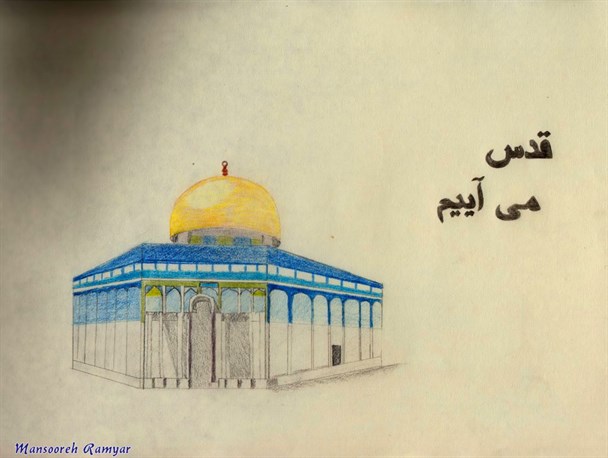 قدس
می آییم
Mansooreh Ramyar